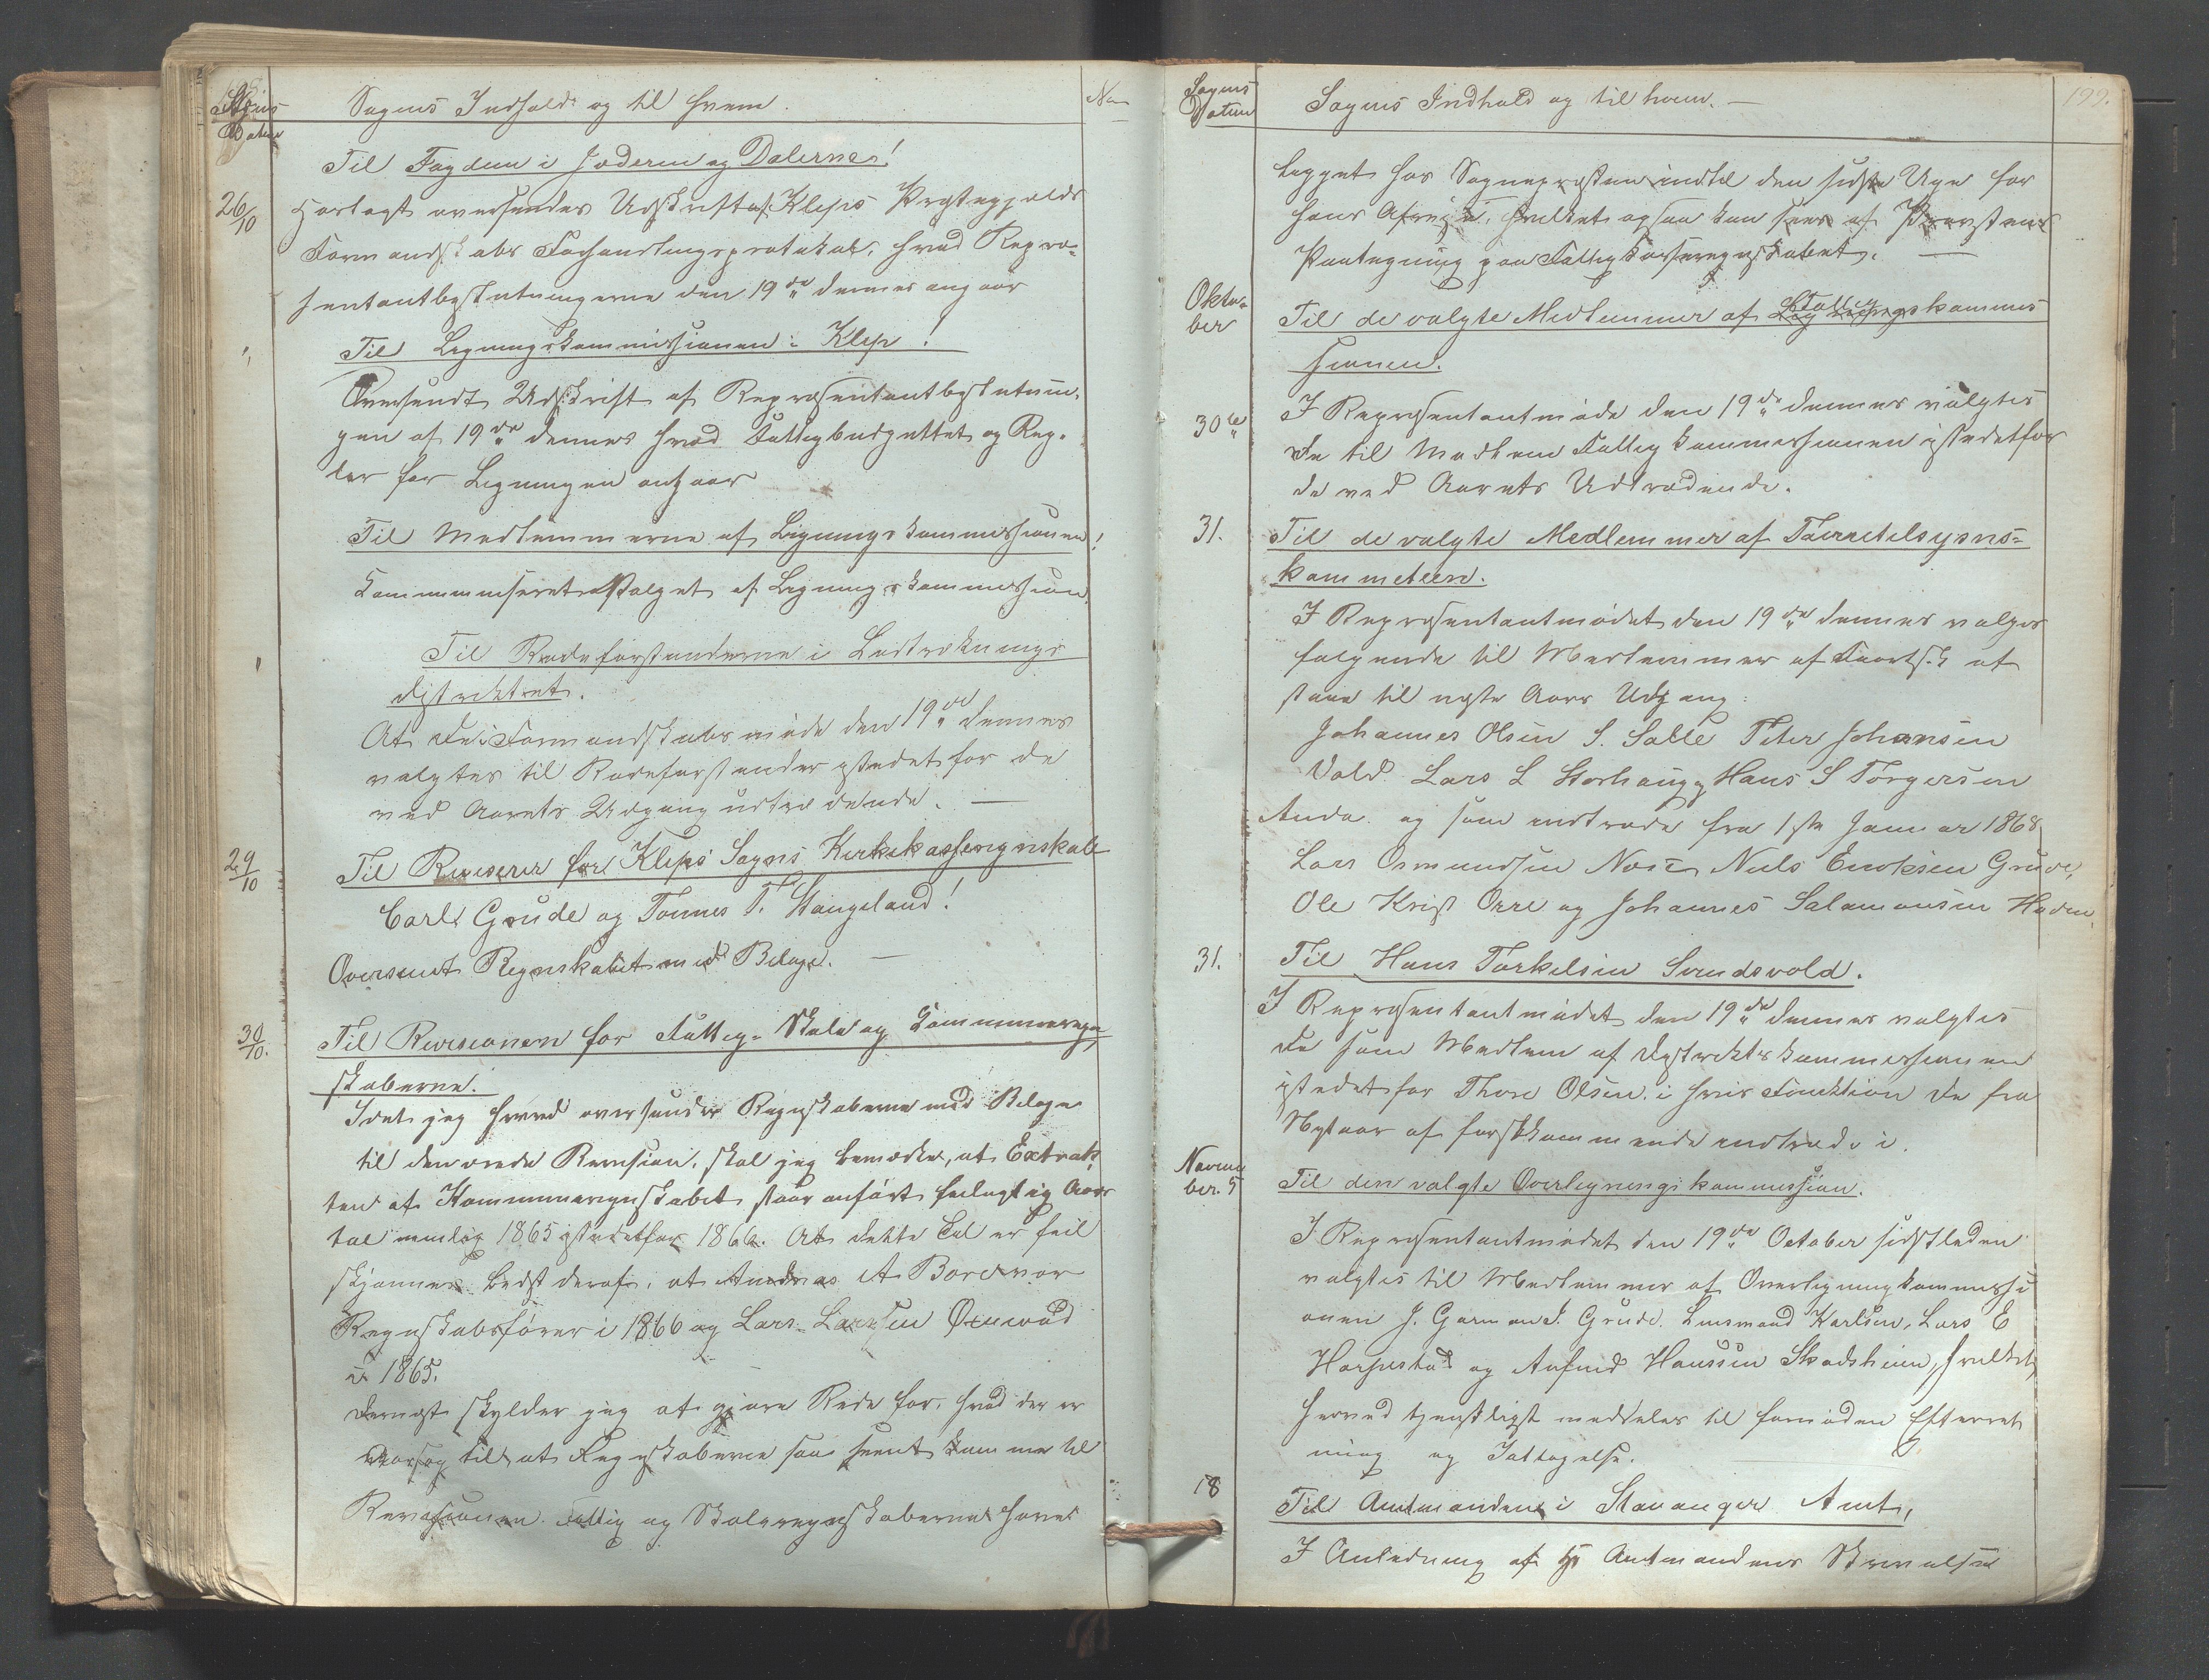 198.
Sagens Datum
Sagens Indhold og til hvem.
No
Til Fogden i Jæderen og Dalerne!
26/10
Hoslagt oversendes Udskrift af Kleps Præstegjelds
Formandskabs Forhandlingsprotokol, hvad Repræ-
sentantbeslutningerne den 19de dennes angaar
"
Til Ligningskommissionen i Klep!
Oversendt Udskrift af Repræsentantbeslutnin-
gen af 19de dennes hvad Fattigbudgettet og Reg-
ler for Ligningen angaar
Til Medlemmerne af Ligningskommissionen!
Communiseret Valget af Ligningskommission.
"
Til Rodeforstanderne i
distriktet.
At De i Formandskabsmøde den 19de dennes
valgtes til Rodeforstander istedetfor de
ved Aarets Udgang udtrædende. —
29/10
Til Reviserer for Kleps Sogns Kirkekasseregnskab
Carl Grude og Tønnes T. Stangeland!
Oversendt Regnskabet med Bilage. —
30/10.
Til Revisionen for Fattig- Skole og Communeregn-
skaberne.
Idet jeg herved oversender Regnskaberne med Bilage
til den ærede Revision, skal jeg bemærke, at Extrak-
ten af Kommuneregnskabet staar anført feilagtig Aars-
tal nemlig 1865 istedetfor 1866. At dette Tal er feil
skjønnes bedst deraf, at Andreas A Bore var
Regnskabsfører i 1866 og Lars Larsen
i 1865.
Dernæst skylder jeg at gjøre Rede for, hvad der er
Aarsag til at Regnskaberne saa seent kommer til
Revisionen. Fattig og Skoleregnskaberne have
Sagens Datum
Sagens Indhold og til hvem. —
199.
ligget hos Sognepræsten indtil den sidste Uge før
hans Afreise, hvilket ogsaa kan sees af Provstens
Paategning paa Fattigkasseregnskabet. —
Okto-
ber
Til de valgte Medlemmer af Fattigkommis-
sionen.
30te
I Repræsentantmøde den 19de dennes valgtes
De til Medlem Fattigkommissionen istedetfor
de ved Aarets Udtrædende.
31.
Til de valgte Medlemmer af Tiørretilsyns-
kommeteen.
I Repræsentantmødet den 19de dennes valges
følgende til Medlemmer af at
staae til næste Aars Udgang:
Johannes Olsen S. Salte Peter Johansen
Vold. Lars L Storhaug, Hans S Torgersen
Anda. og som indtræde fra 1ste Januar 1868
Lars Osmundsen Næse, Niels Enoksen Grude,
Ole Krist Orre og Johannes Salamonsen
31.
Til Hans Torkelsen Svendsvold.
I Repræsentantmødet den 19de dennes valgtes
De som Medlem af Distriktskommissionen
istedetfor Thore Olsen, i hvis Funktion De fra
Nytaar af førstkommende indtræde i.
Novem-
ber. 5
Til den valgte Overligningskommission.
I Repræsentantmødet den 19de October sidstleden
valgtes til Medlemmer af Overligningskommissi-
onen J. Garmann Grude. Lensmand Karlsen, Lars E
Harpestad og Anfind Hanssen Skadsheim, hvilket
herved tjenstligst meddeles til fornøden Efterret-
ning og Iattagelse.
18
Til Amtmanden i Stavanger Amt,
I Anledning af Hr Amtmandens Skrivelse